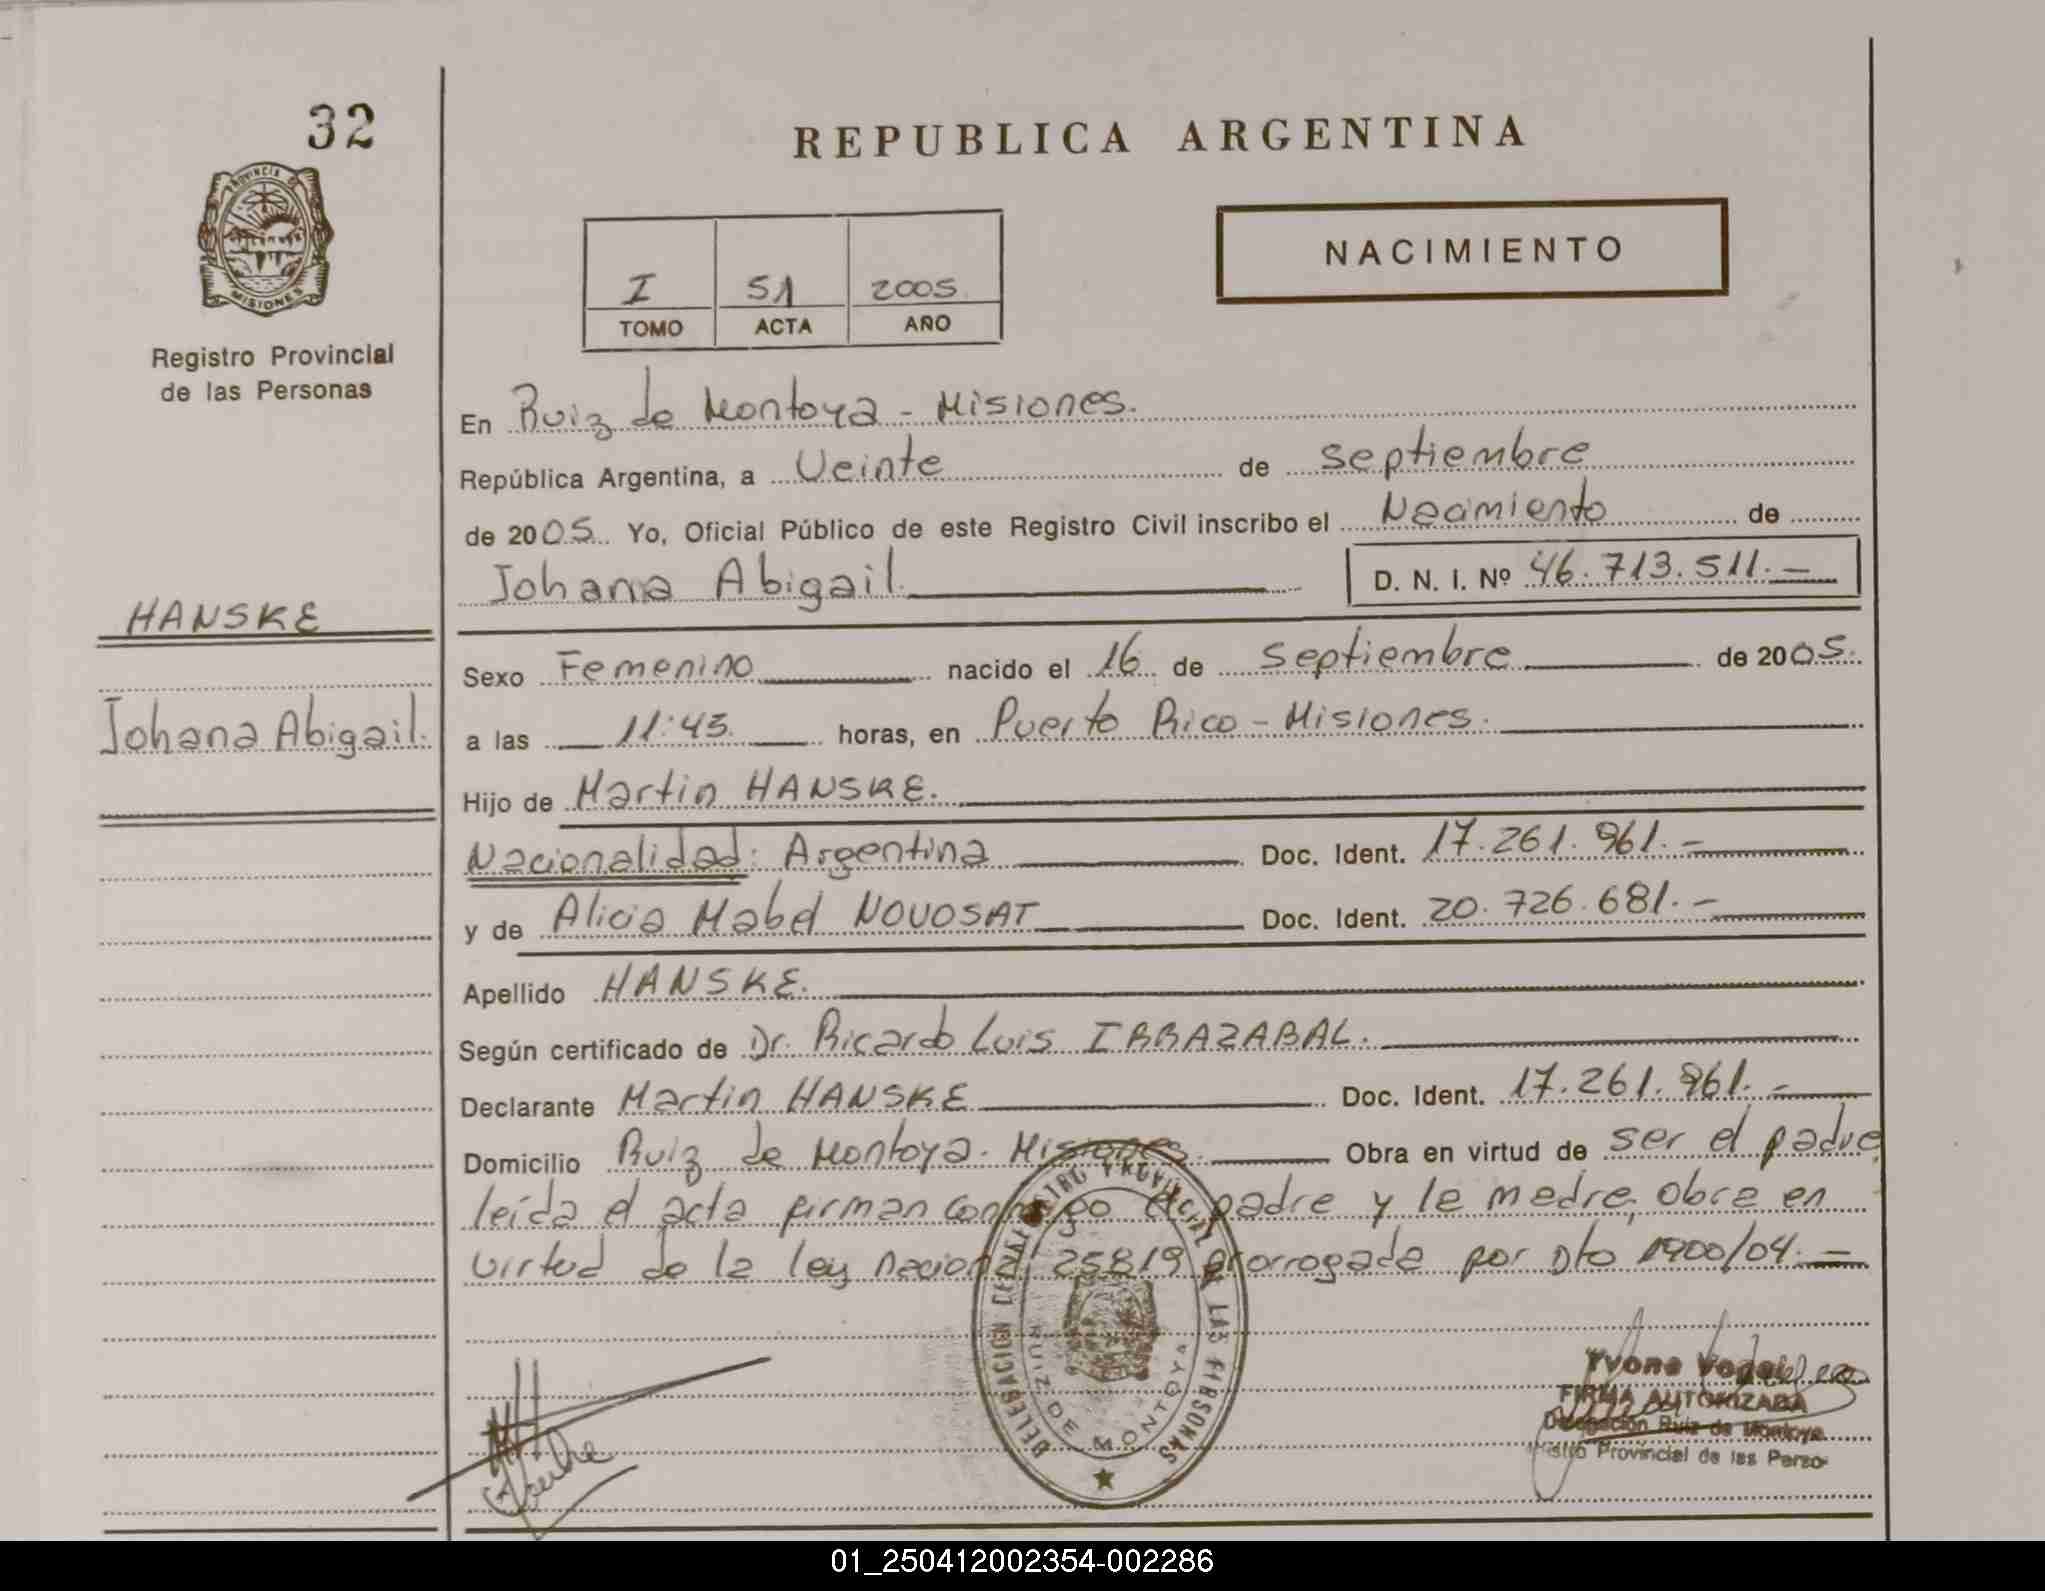 32
PROVINCIA DE
MISIONES
Registro Provincial
de las Personas
HANSKE
Johana Abigail.
REPUBLICA ARGENTINA
I 51 2005
TOMO ACTA AÑO
NACIMIENTO
En Ruiz de Montoya - Misiones.
República Argentina, a Veinte de septiembre
de 2005. Yo, Oficial Público de este Registro Civil inscribo el Nacimiento de
Johana Abigail. D. N. I. Nº 46.713.511.-
Sexo Femenino nacido el 16 de Septiembre de 2005.
a las 11:45. horas, en Puerto Rico - Misiones.
Hijo de Martin HANSKE.
Nacionalidad: Argentina Doc. Ident. 17.261.961.-
y de Alicia Mabel NOVOSAT Doc. Ident. 20.726.681.-
Apellido HANSKE.
Según certificado de Dr. Ricardo Luis IRRAZABAL.
Declarante Martin HANSKE Doc. Ident. 17.261.961.-
Domicilio Ruiz de Montoya. Misiones. Obra en virtud de ser el padre,
leída el acta firman conmigo el padre y la madre, obra en
virtud de la ley nacional 25819 prorrogada por Dto 1900/04.=
DELEGACION REGISTRO PROVINCIAL DE LAS PERSONAS
RUIZ DE MONTOYA
Yvone
FIRMA AUTORIZADA
Delegación Ruiz de Montoya
Provincial de las Perso-
01_250412002354-002286